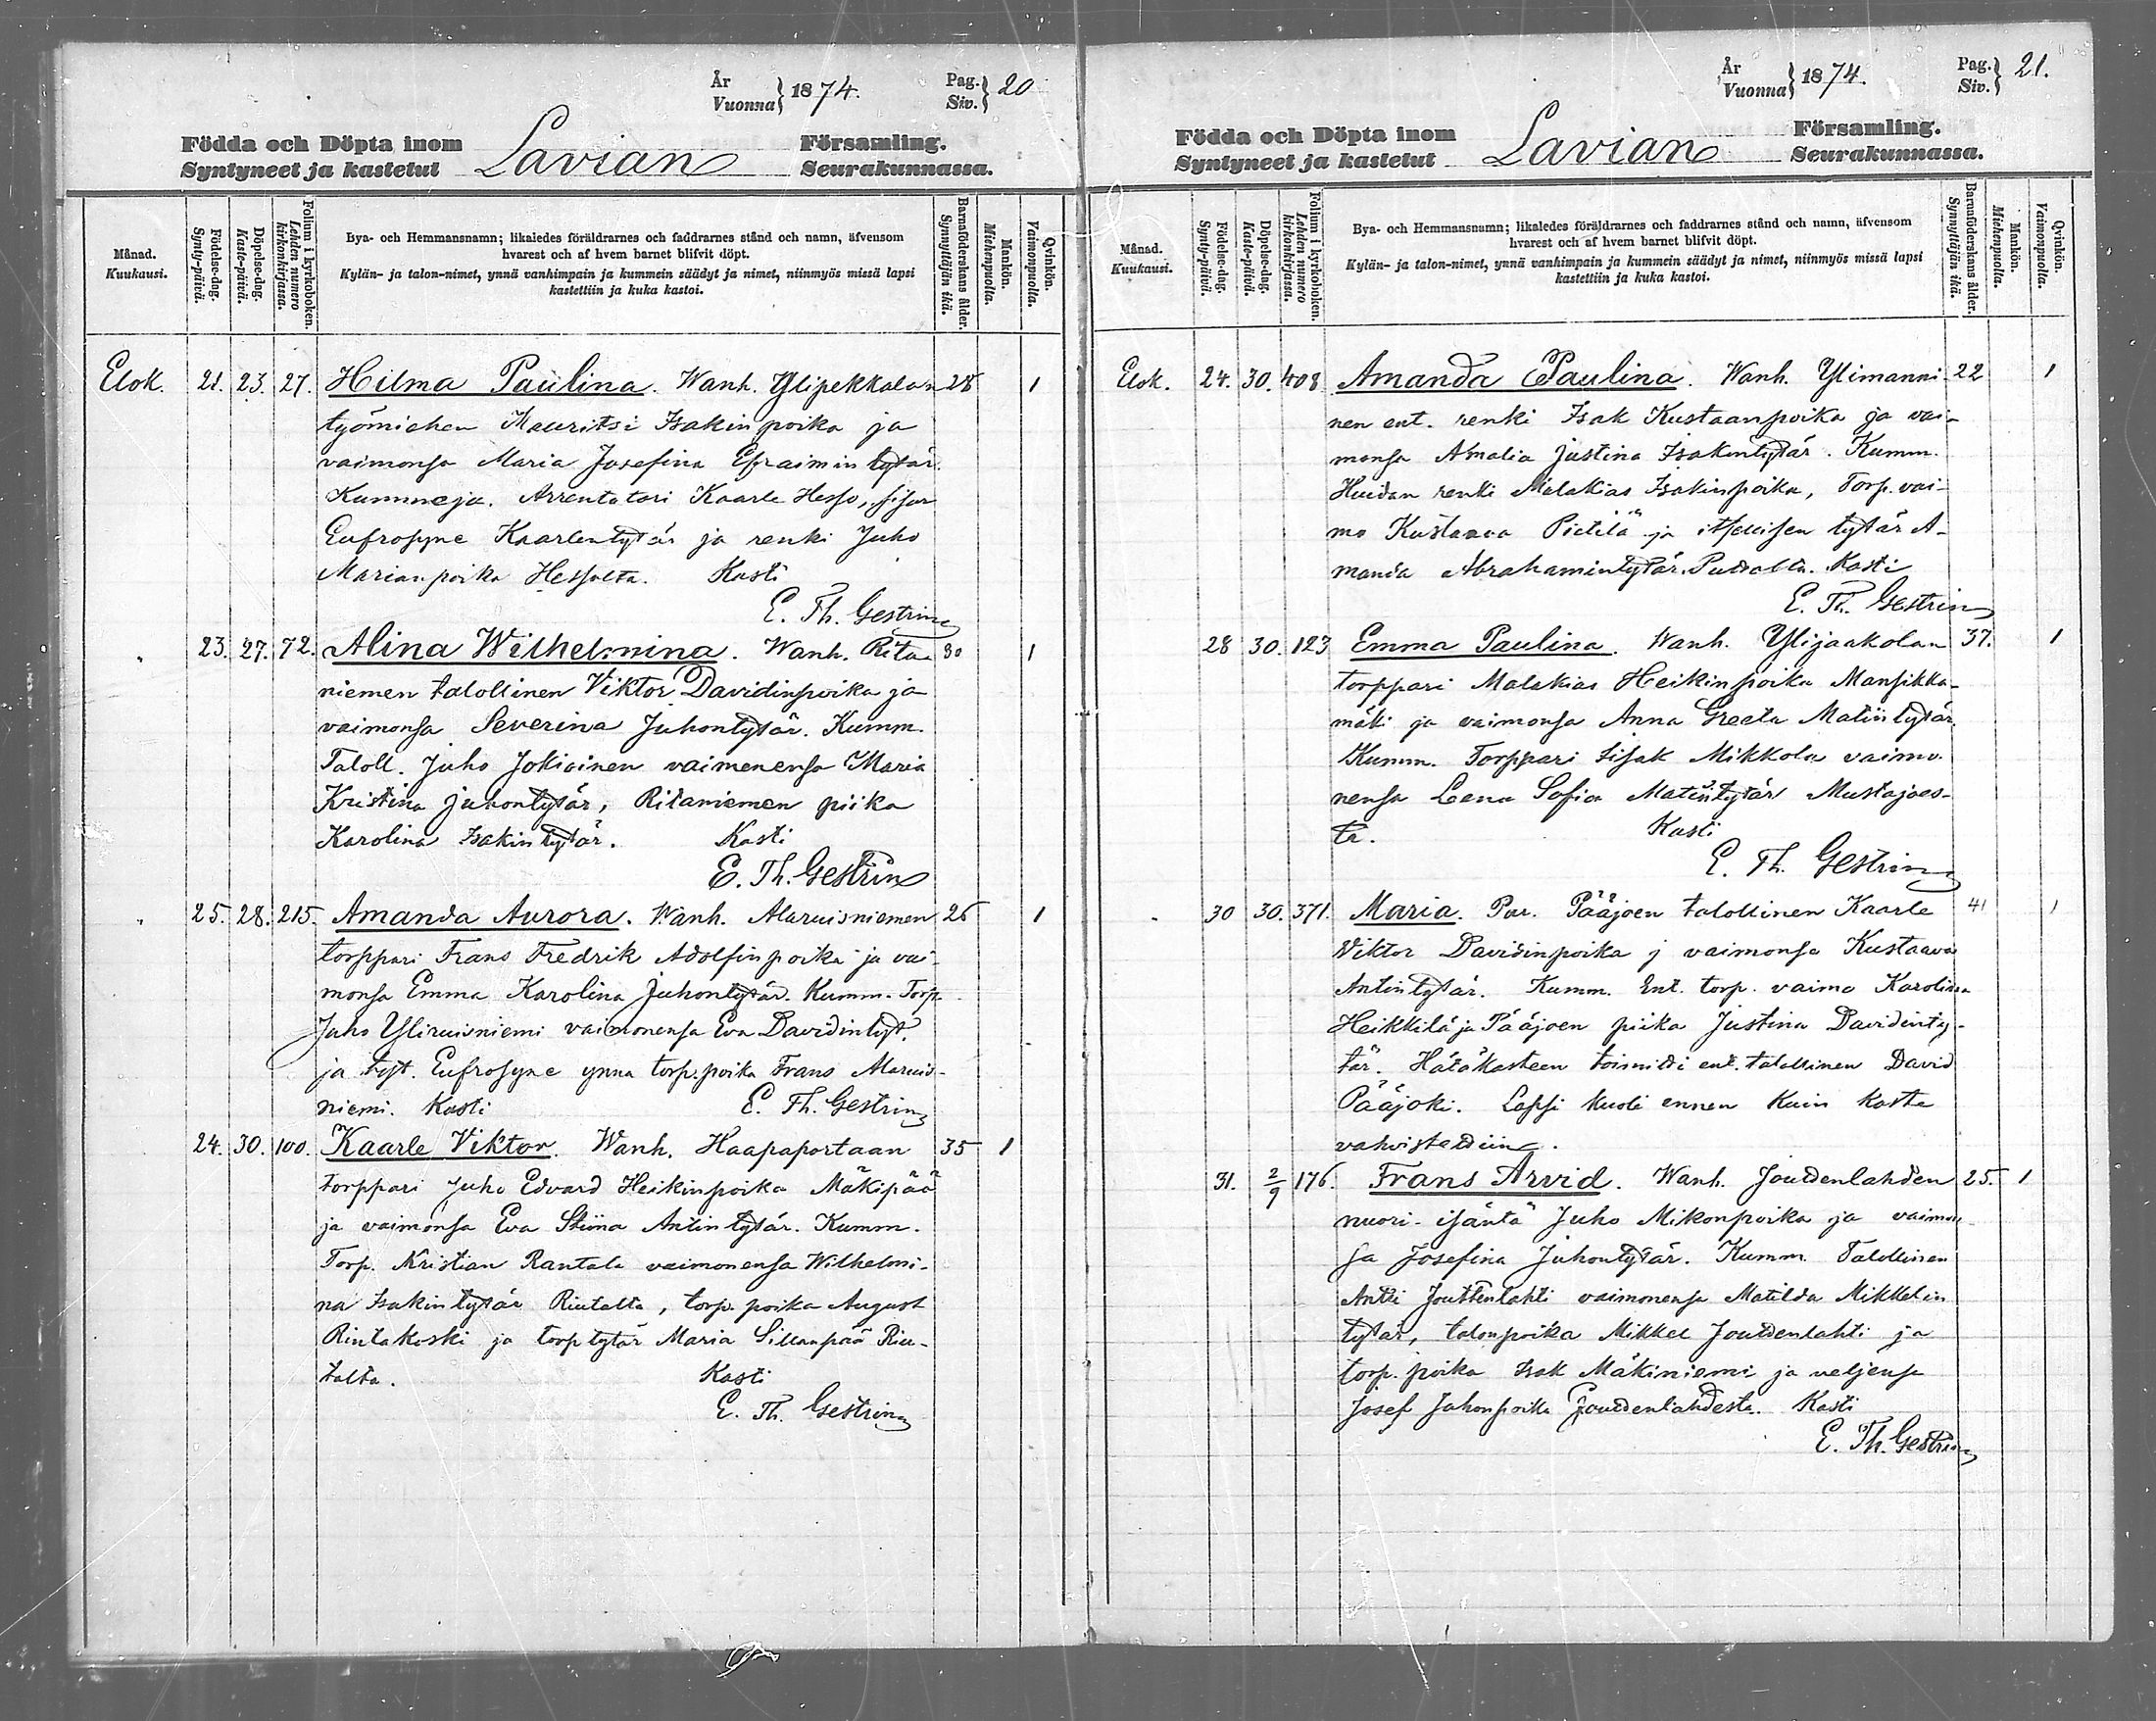 År
Vuonna} 1874.
Pag.
Siv.} 20
Födda och Döpta inom
Syntyneet ja kastetut
Lavian
Församling.
Seurakunnassa.
Månad.
Kuukausi.
Födelse-dag.
Synty-päivä.
Döpelse-dag.
Kaste-päivä.
Folium i kyrkoboken.
Lehden numero
kirkonkirjassa.
Bya- och Hemmansnamn; likaledes föräldrarnes och faddrarnes stånd och namn, äfvensom
hvarest och af hvem barnet blifvit döpt.
Kylän- ja talon-nimet, ynnä vanhimpain ja kummein säädyt ja nimet, niinmyös missä lapsi
kastettiin ja kuka kastoi.
Barnaföderskans ålder.
Synnyttäjän ikä.
Mankön.
Miehenpuolia.
Qvinkön.
Vaimonpuolia.
Elok. 21. 23. 27. Hilma Paulina. Wanh. Ylipekkalan 28 1
työmiehen Mauritsi Isakinpoika ja
vaimonsa Maria Josefina Efraimintytär.
Kummeja. Arrentatori Kaarle Hesso, sisar
Eufrosyne Kaarlentytär ja renki Juho
Marianpoika Hessolta. Kasti
E. Th. Gestrin
" 23. 27. 72. Alina Wilhelmina. Wanh. Rita- 30 1
niemen talollinen Viktor Davidinpoika ja
vaimonsa Severina Juhontytär. Kumm.
Taloll. Juho Jokioinen vaimonensa Maria
Kristina Juhontytär, Ritaniemen piika
Karolina Isakintytär. Kasti
E. Th. Gestrin
" 25. 28. 215. Amanda Aurora. Wanh. Alaruisniemen 26 1
torppari Frans Fredrik Adolfinpoika ja vai-
monsa Emma Karolina Juhontytär. Kumm. Torp.
Juho Yliruisniemi vaimonensa Eva Davidintyt.
ja tyt. Eufrosyne ynna torp. poika Frans Alaruis-
niemi. Kasti E. Th. Gestrin
24. 30. 100. Kaarle Viktor. Wanh. Haapaportaan 35 1
torppari Juho Edvard Heikinpoika Mäkipää
ja vaimonsa Eva Stiina Antintytär. Kumm.
Torp. Kristian Rantala vaimonensa Wilhelmi-
na Isakintytär Riutalta, torp. poika August
Rintakoski ja torp tytär Maria Sillanpää Riu-
talta. Kasti
E. Th. Gestrin
År
Vuonna} 1874.
Pag.
Siv.} 21.
Födda och Döpta inom
Syntyneet ja kastetut
Lavian
Församling.
Seurakunnassa.
Månad.
Kuukausi.
Födelse-dag.
Synty-päivä.
Döpelse-dag.
Kaste-päivä.
Folium i kyrkoboken.
Lehden numero
kirkonkirjassa.
Bya- och Hemmansnamn; likaledes föräldrarnes och faddrarnes stånd och namn, äfvensom
hvarest och af hvem barnet blifvit döpt.
Kylän- ja talon-nimet, ynnä vanhimpain ja kummein säädyt ja nimet, niinmyös missä lapsi
kastettiin ja kuka kastoi.
Barnaföderskans ålder.
Synnyttäjän ikä.
Mankön.
Miehenpuolla.
Qvinkön.
Vaimonpuolla.
Elok. 24. 30. 408 Amanda Paulina. Wanh. Ylimanni- 22 1
nen ent. renki Isak Kustaanpoika ja vai-
monsa Amalia Justina Isakintytär. Kumm.
Huidan renki Malakias Isakinpoika, Torp. vai-
mo Kustaava Pietilä ja itsellisen tytär A-
manda Abrahamintytär. Kasti
E. Th. Gestrin
28 30. 123 Emma Paulina. Wanh. Ylijaakolan 37. 1
torppari Malakias Heikinpoika Mansikka-
mäki ja vaimonsa Anna Greeta Matintytär.
Kumm. Torppari Iisak Mikkola vaimo-
nensa Lena Sofia Matintytär Mustajoes-
ta. Kasti
E. Th. Gestrin
" 30 30. 371. Maria. Par. Pääjoen talollinen Kaarle 41 1
Viktor Davidinpoika j vaimonsa Kustaava
Antintytär. Kumm. Ent. torp. vaimo Karolina
Heikkilä ja Pääjoen piika Justina Davidinty-
tär. Hätäkasteen toimitti ent. talollinen David
Pääjoki. Lapsi kuoli ennen kuin kaste
vahvistettiin.
31. 2/9 176. Frans Arvid. Wanh. Jouttenlahden 25. 1
nuori-isäntä Juho Mikonpoika ja vaimon-
sa Josefina Juhontytär. Kumm. Talollinen
Antti Jouttenlahti vaimonensa Matilda Mikkelin
tytär, talonpoika Mikkel Jouttenlahti ja
torp. poika Isak Mäkiniemi ja veljensa
Josef Juhonpoika Jouttenlahdesta. Kasti
E. Th. Gestrin